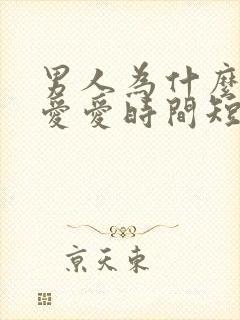 男人為什麼
愛愛時間短
京天東